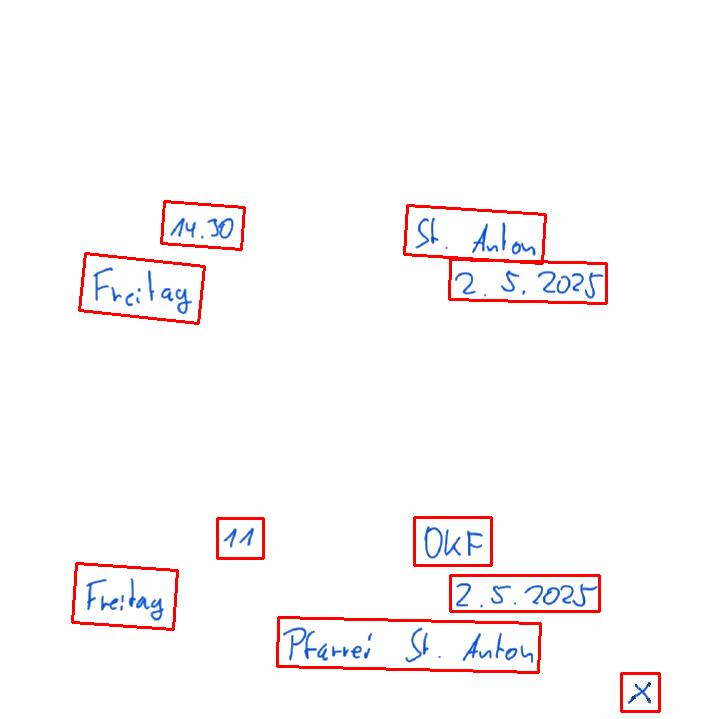 14.30 St. Anton
Freitag 2. 5. 2025
11 OKF
Freitag 2.5.2025
Pfarrei St. Anton
X